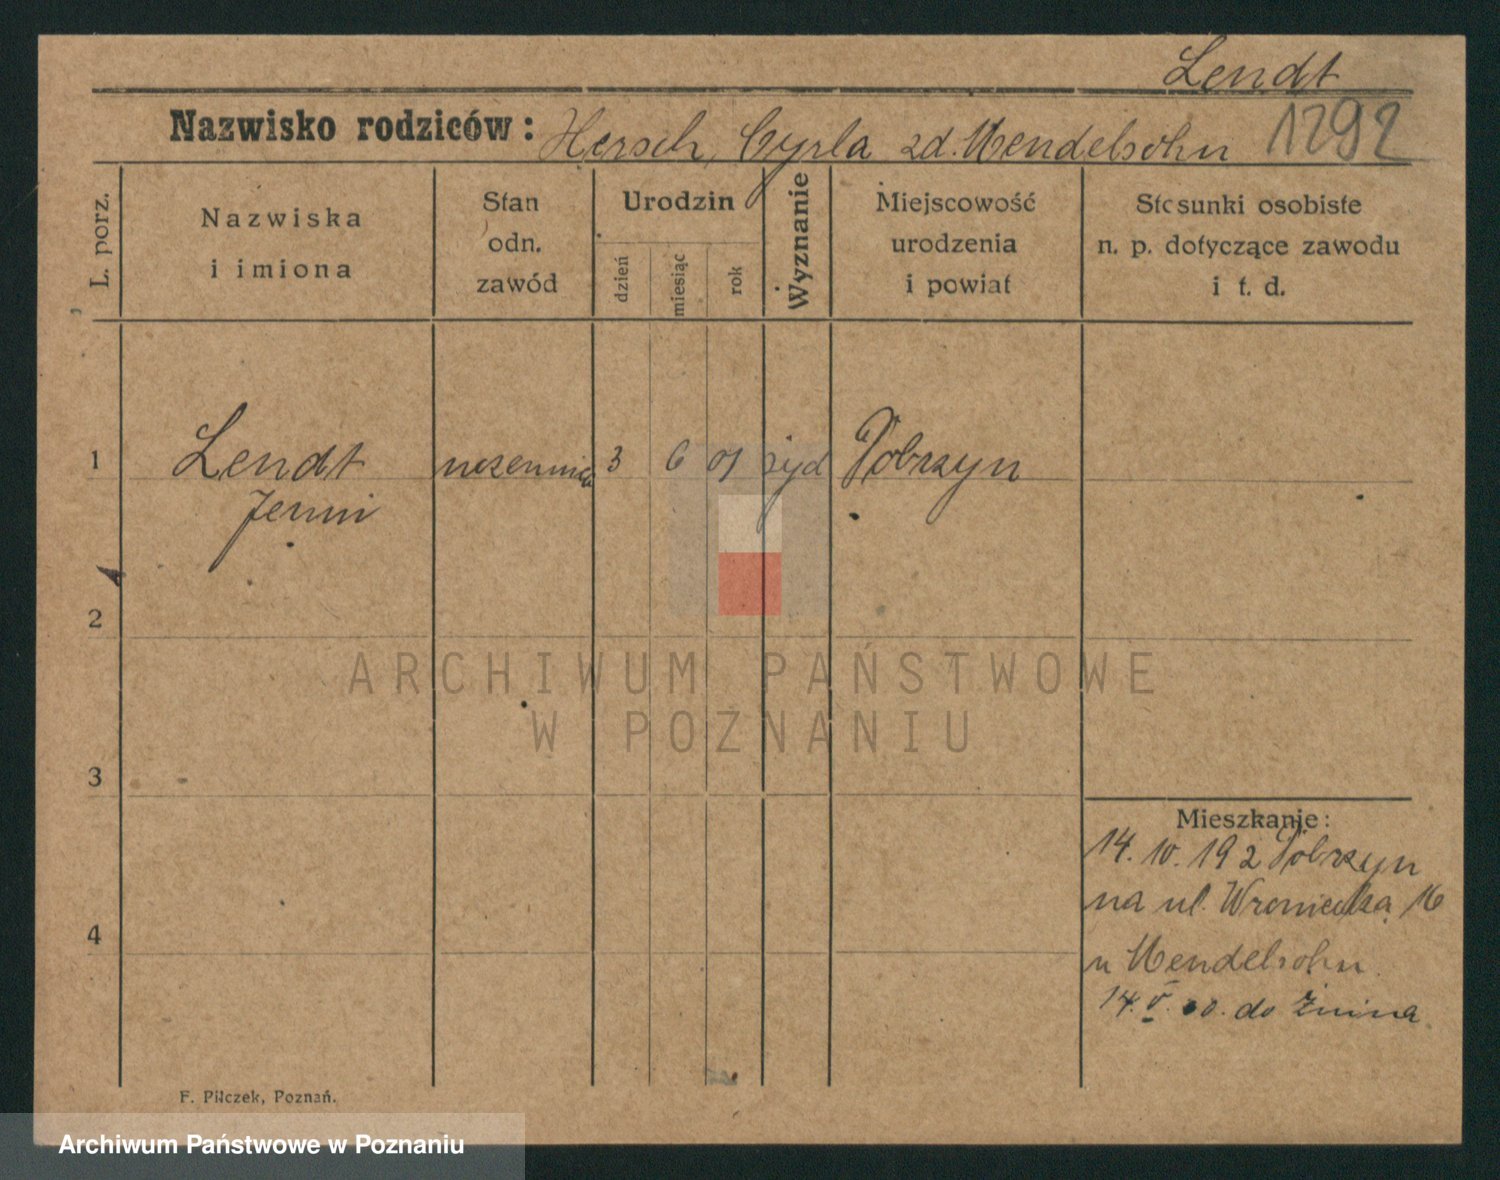 Lendt
Nazwisko rodziców: Hersch, Cyrla zd. Mendelsohn 1292
L. porz.
Nazwiska
i imiona
Stan
odn.
zawód
Urodzin
dzień
miesiąc
rok
Wyznanie
Miejscowość
urodzenia
i powiat
Stosunki osobiste
n. p. dotyczące zawodu
i t. d.
1 Lendt uczennica 3 6 01 żyd Dobrzyn
2
3
4
Mieszkanie:
14. 10. 192 Dobrzyn
na ul. Wroniecka 16
u Mendelsohn
14. V. do Żnina
F. Pilczek, Poznań.
ARCHIWUM PAŃSTWOWE
W POZNANIU
Archiwum Państwowe w Poznaniu